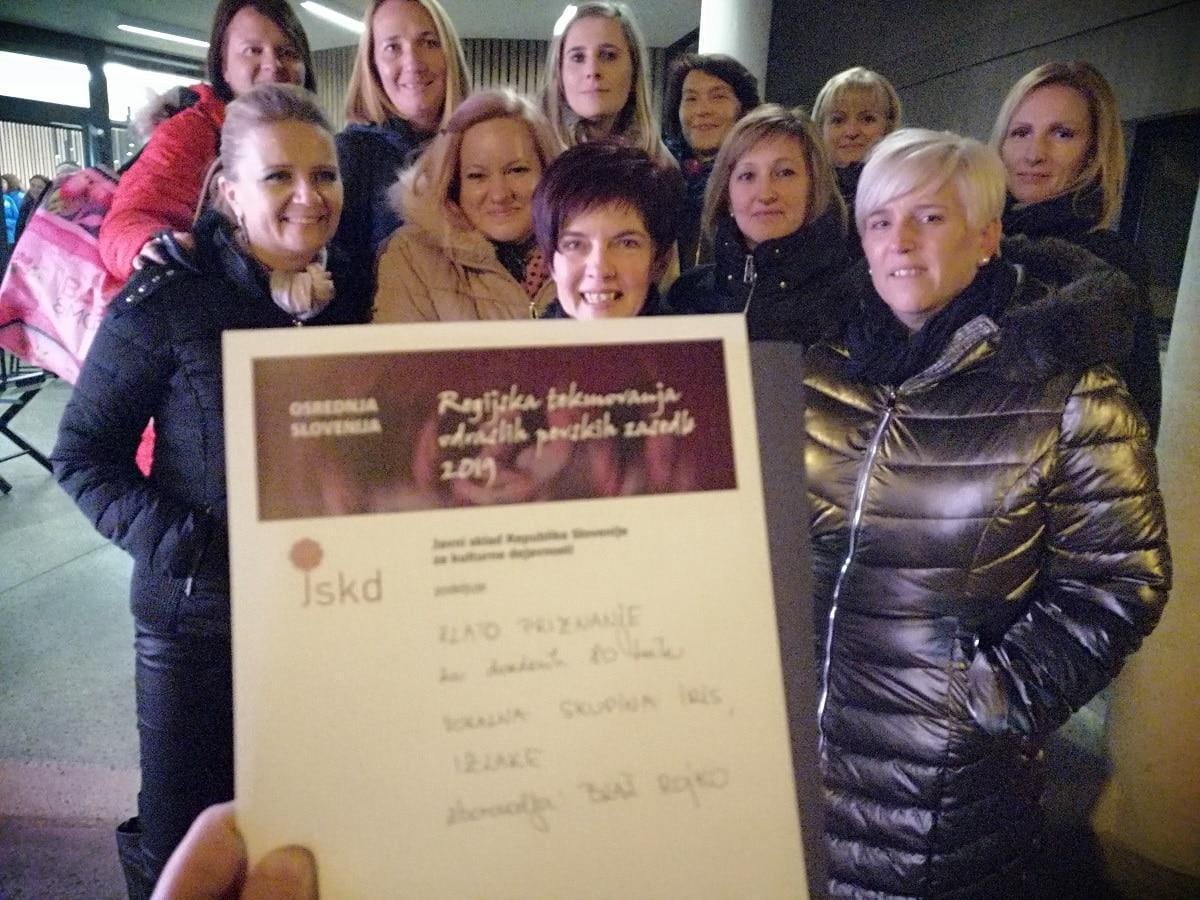 OSREDNJA
SLOVENIJA
Regijska tekmovanja
odraslih pevskih zasedb
2019
jskd
Javni sklad Republike Slovenije
za kulturne dejavnosti
podeljuje
ZLATO PRIZNANJE
za doseženih 80 točk
VOKALNA SKUPINA IRIS,
IZLAKE
zborovodja: BLAŽ ROJKO